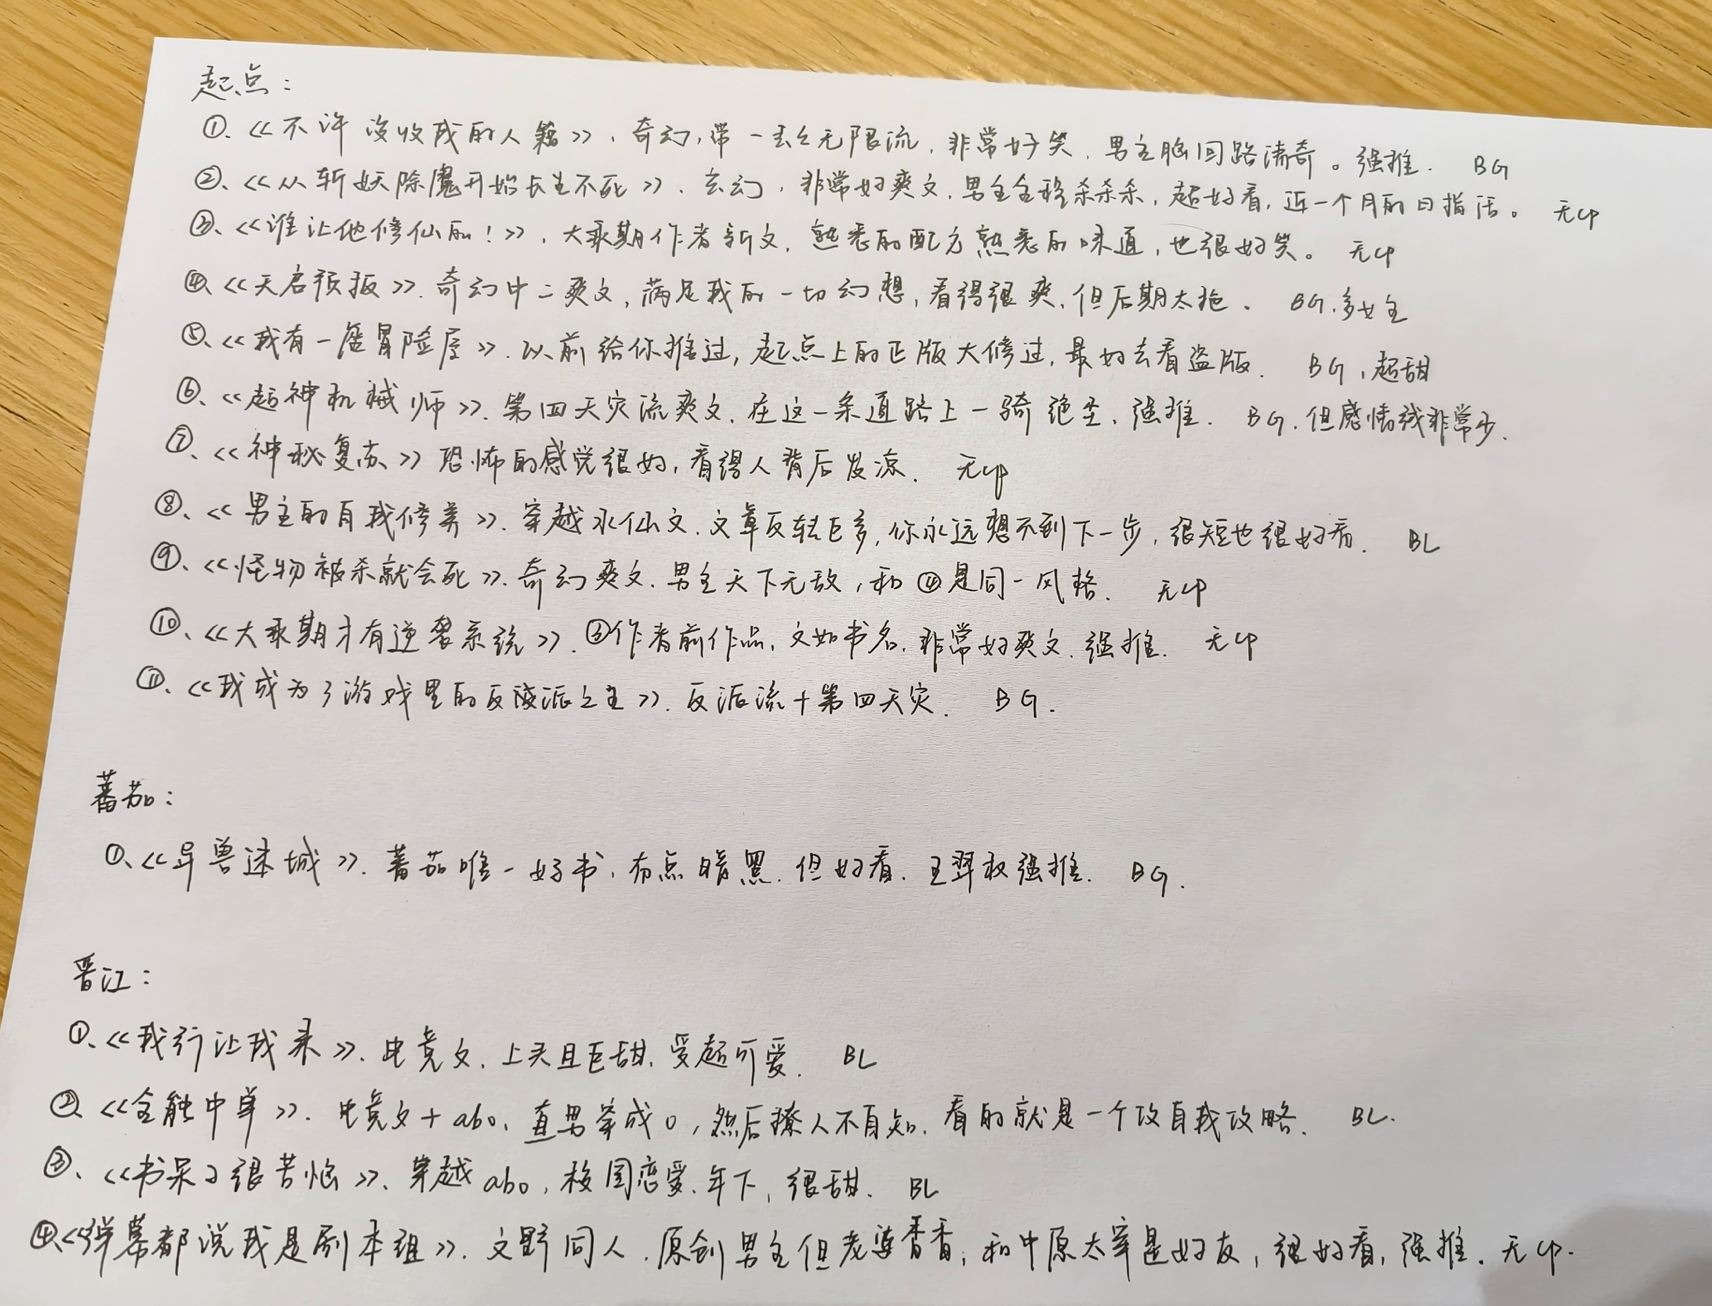 起点：
①、《不许没收我的人籍》，奇幻，带一丢丢无限流，非常好笑，男主脑回路清奇。强推． BG
②、《从斩妖除魔开始长生不死》、玄幻，非常好爽文，男主全程杀杀杀，超好看，近一个月的日指活。 无cp
③、《谁让他修仙的！》，大乘期作者新文，熟悉的配方熟悉的味道，也很好笑。 无cp
④、《天启预报》．奇幻中二爽文，满足我的一切幻想，看得很爽，但后期太拖。 BG，多女主
⑤、《我有一座冒险屋》．以前给你推过，起点上的正版大修过，最好去看盗版． BG，超甜
⑥、《超神机械师》．第四天灾流爽文．在这一条道路上一骑绝尘，强推． BG．但感情线非常少．
⑦、《神秘复苏》恐怖的感觉很好，看得人背后发凉． 无cp
⑧、《男主的自我修养》．穿越水仙文．文章反转巨多，你永远想不到下一步，很短也很好看． BL
⑨、《怪物被杀就会死》．奇幻爽文．男主天下无敌，和④是同一风格． 无cp
⑩、《大乘期才有逆袭系统》．③作者前作品，文如书名，非常好爽文．强推． 无cp
⑪、《我成为了游戏里的反派之主》．反派流＋第四天灾． BG．
蕃茄：
①、《异兽迷城》．蕃茄唯一好书，有点暗黑．但好看．王羿权强推． BG．
晋江：
①、《我行让我来》．电竞文．上头且巨甜．受超可爱． BL
②、《全能中单》．电竞文＋abo、直男穿成o，然后撩人不自知．看的就是一个攻自我攻略． BL．
③、《书呆子很苦恼》．穿越abo，校园恋爱．年下，很甜． BL
④《弹幕都说我是剧本组》．文野同人．原创男主但老莲香香，和中原太宰是好友，很好看，强推．无cp．